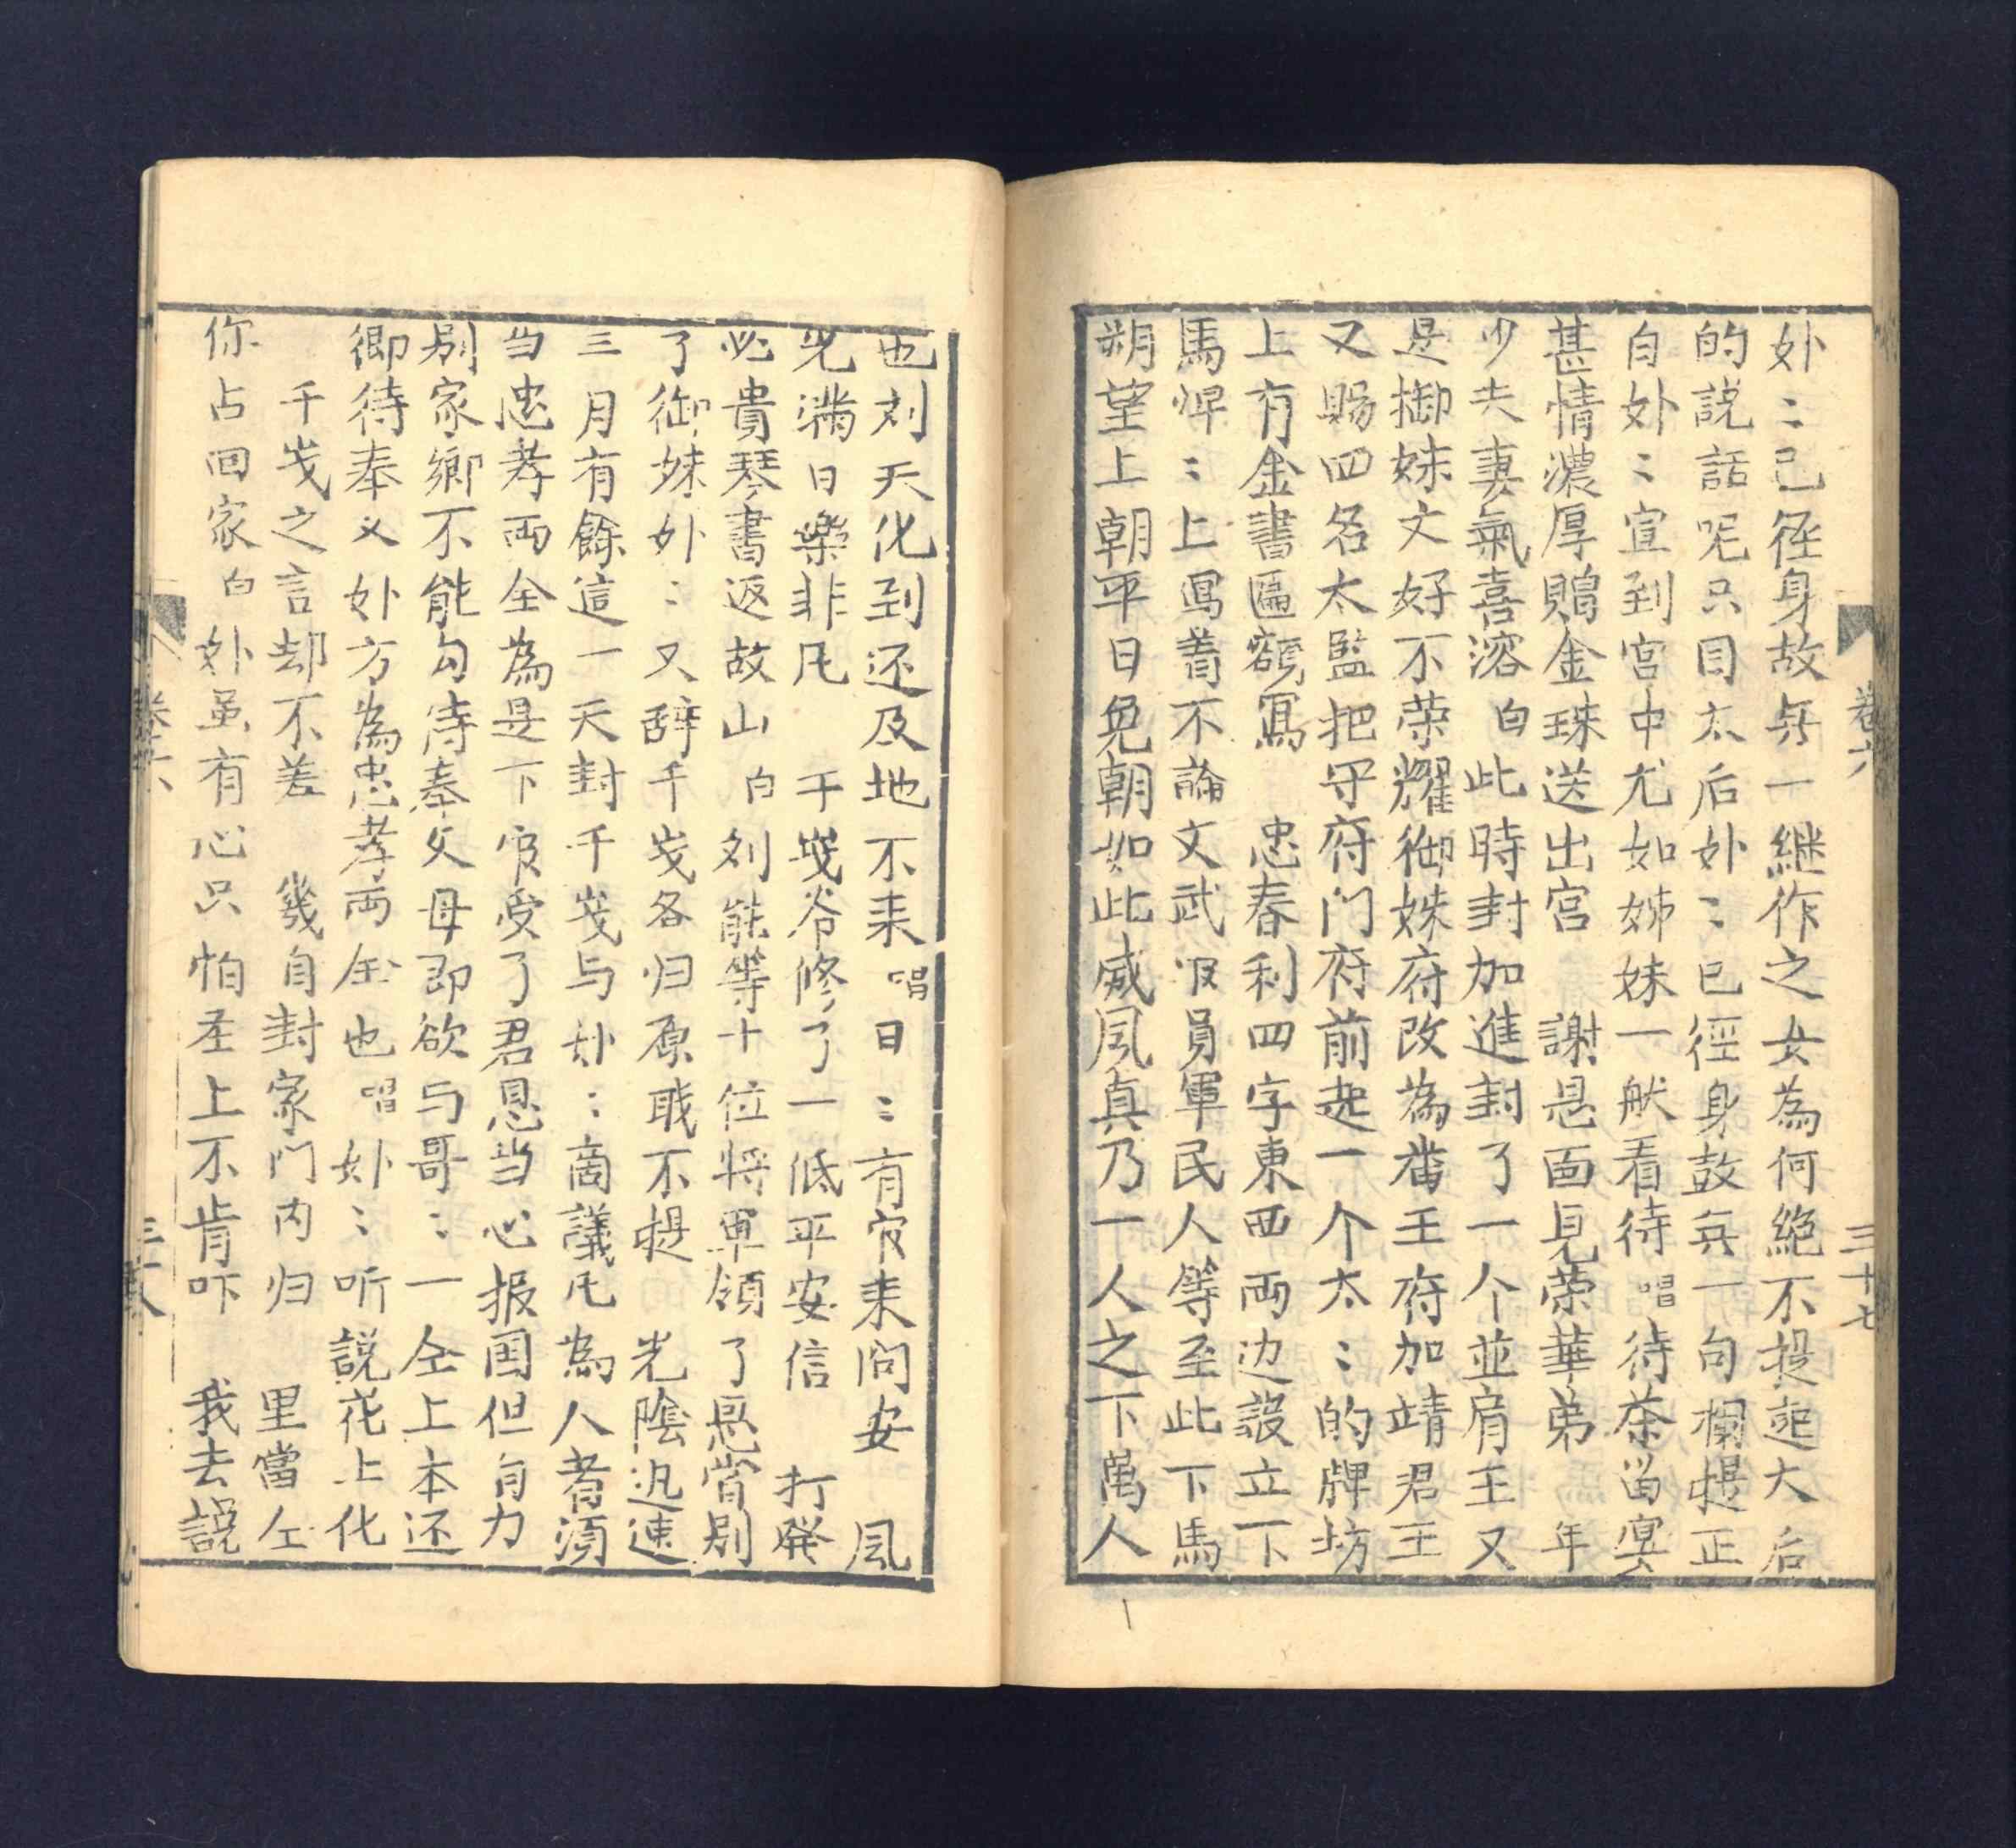 卷六 三十七
妣〻已徑身故兵一継作之女為何絕不提起大后
的説話呢只因太后妣〻已徑身故兵一句欄提正
自妣〻宣到宮中尤如姊妹一般看待唱待茶留宴
甚情濃厚贈金珠送出宮 謝恩面見荣華弟 年
少夫妻氣喜溶白此時封加進封了一个並肩王又
是御妹文好不荣耀御妹府改為畨王府加靖君王
又賜四名太監把守府门府前起一个太〻的牌坊
上有金書匾額寫 忠春利四字東西両边設立下
馬悍〻上寫着不論文武官員軍民人等至此下馬
朔望上朝平日免朝如此威風真乃一人之下萬人
也刘天化到还及地不耒唱日〻有官耒问安 風
光满日樂非凡 千岁爷修了一低平安信 打發
必貴琴書返故山白刘能等十位将軍領了恩當别
了御妹妣〻又辞千岁各归原戢不提 光陰迅速
三月有餘這一天封千岁与妣〻商議凡為人者須
当忠孝両全為是下官受了君恩当心报囯但自力
别家鄉不能勾侍奉父母即欲与哥〻一仝上本还
鄉待奉父妣方為忠孝両全也唱妣〻听説花上化
千岁之言却不差 幾自封家门内归 里當仝
你占回家白妣虽有心只怕圣上不肯吓 我去説
卷六 三十八